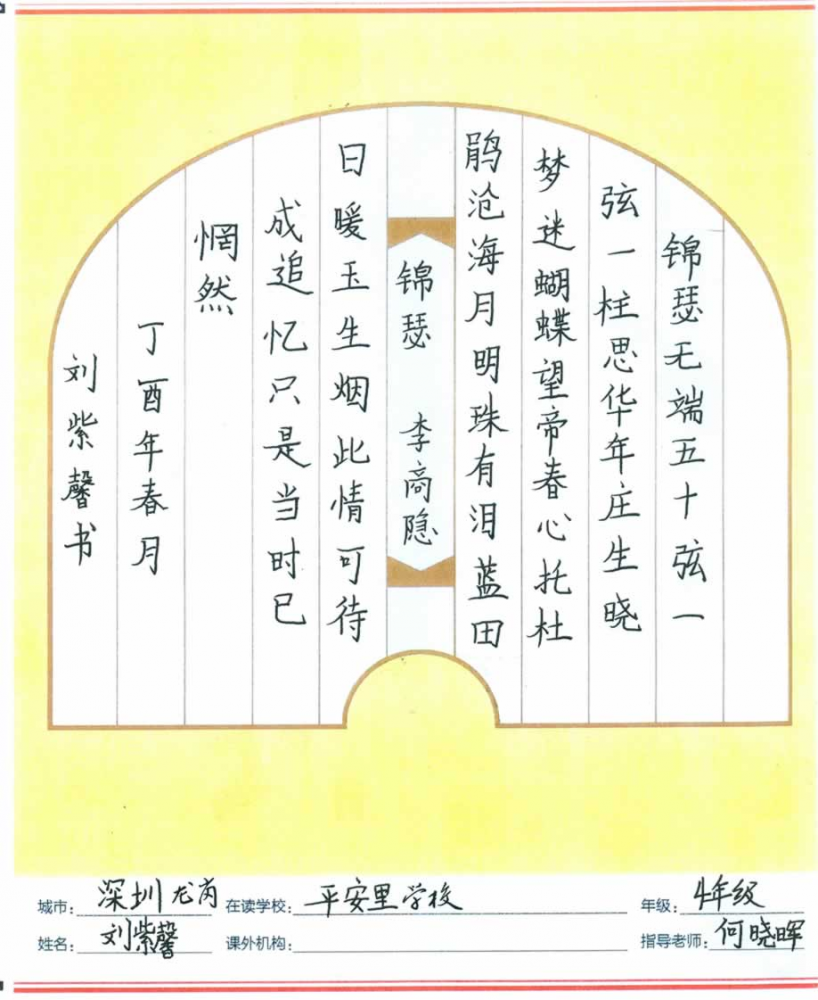 锦瑟无端五十弦一
弦一柱思华年庄生晓
梦迷蝴蝶望帝春心托杜
鹃沧海月明珠有泪蓝田
锦瑟 李商隐
日暖玉生烟此情可待
成追忆只是当时已
惘然
丁酉年春月
刘紫馨书
城市: 深圳龙岗 在读学校: 平安里学校 年级: 4年级
姓名: 刘紫馨 课外机构: 指导老师: 何晓晖